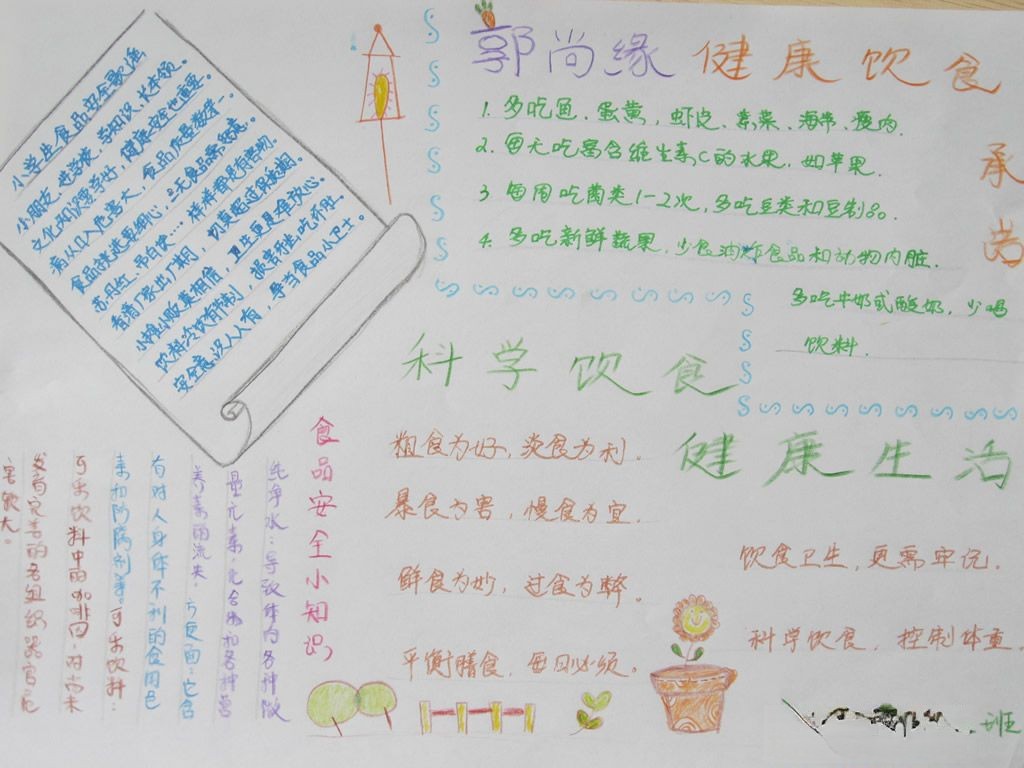 郭尚缘 健康饮食
承诺
1. 多吃鱼、蛋黄、虾皮、紫菜、海带、瘦肉.
2. 每天吃富含维生素C的水果,如苹果.
3 每周吃菌类1-2次,多吃豆类和豆制品.
4. 多吃新鲜蔬果,少食油炸食品和动物内脏.
多吃牛奶或酸奶,少喝
饮料.
小学生食品安全歌谣
小朋友,进学校,学知识,长本领。
文化知识要学好,健康安全也重要。
病从口入危害大,食品质量数第一。
食品挑选要细心,三无食品需留意。
苏丹红、吊白快……样样都是有害物。
看清厂家出厂期,切莫超过保质期。
小摊小贩莫相信,卫生更是难放心。
饮料冷饮有节制,
安全意识人人有,争当食品小卫士。
科学饮食
粗食为好,炎食为利.
暴食为害,慢食为宜.
鲜食为妙,过食为弊.
平衡膳食,每日必须。
健康生活
饮食卫生,更需牢记.
科学饮食,控制体重.
班
食品安全小知识
纯净水:导致体内各种微
量元素,化合物和各种营
养素的流失.
方便面:它含
有对人身体不利的食用色
素和防腐剂等。可乐饮料:
可乐饮料中的咖啡因,对尚未
发育完善的各组织器官危
害较大。